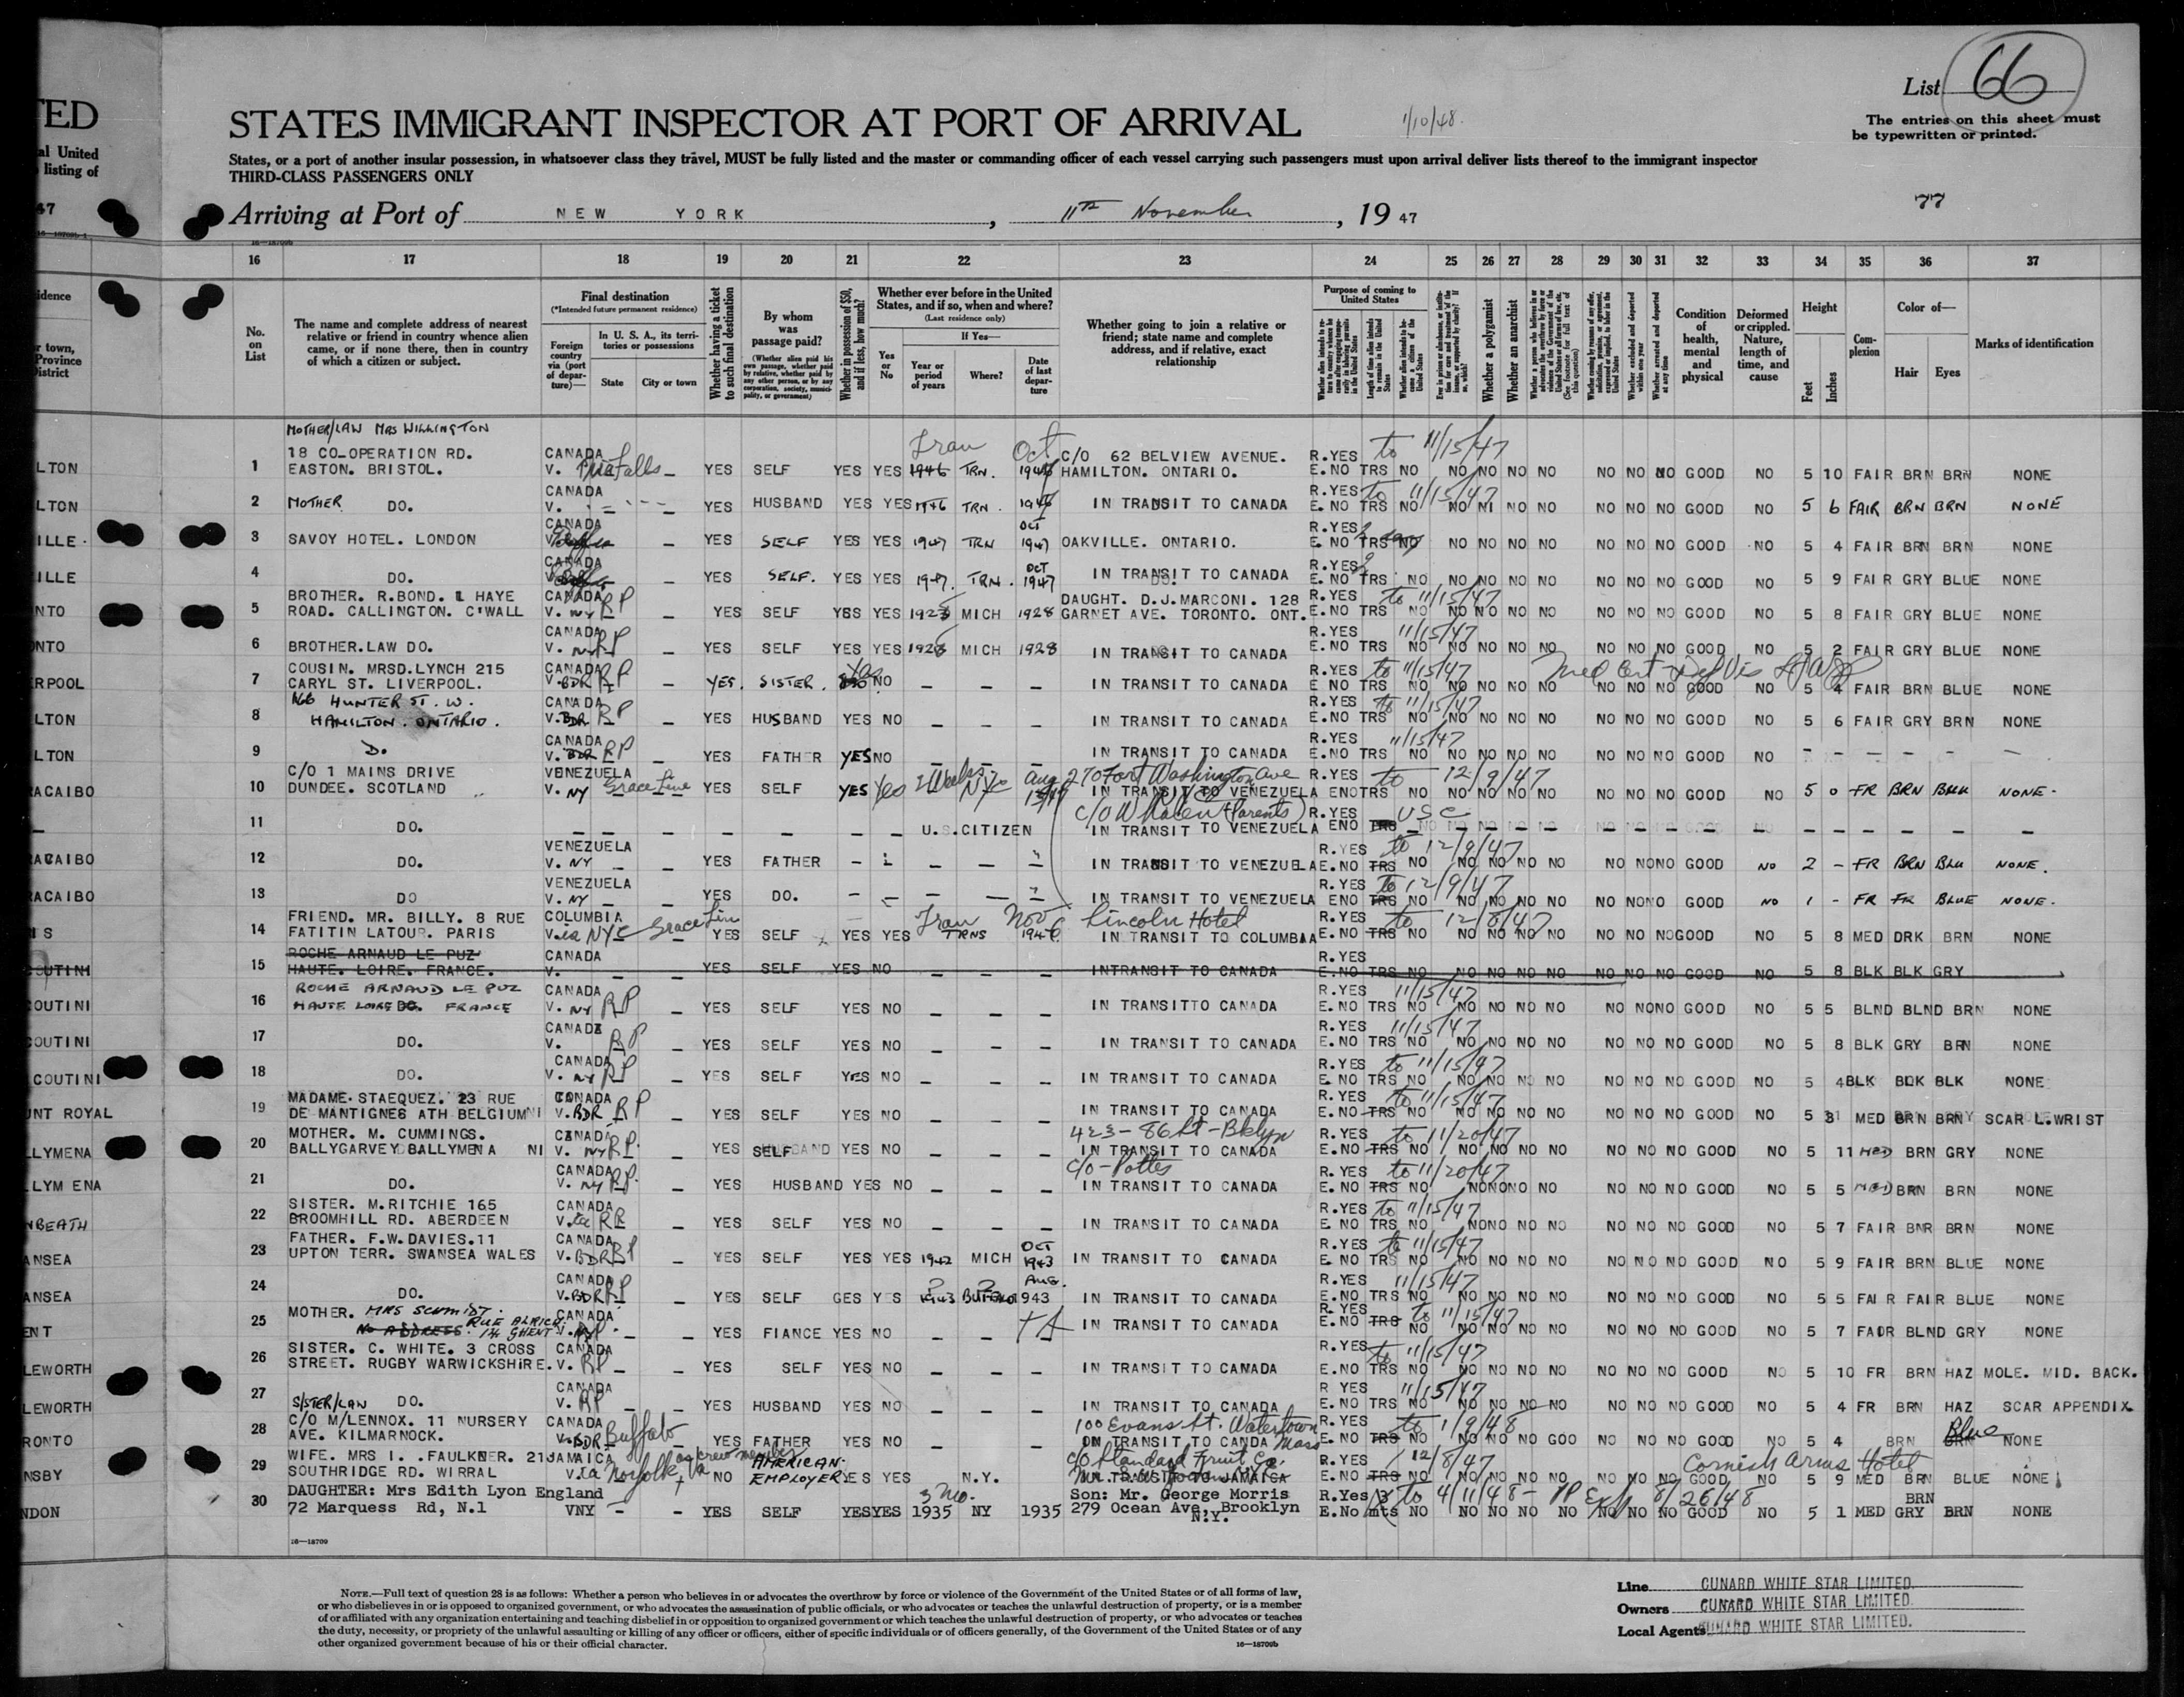 List 66
The entries on this sheet must
be typewritten or printed.
TED
al United
listing of
47
STATES IMMIGRANT INSPECTOR AT PORT OF ARRIVAL
1/10/48.
States, or a port of another insular possession, in whatsoever class they travel, MUST be fully listed and the master or commanding officer of each vessel carrying such passengers must upon arrival deliver lists thereof to the immigrant inspector
THIRD-CLASS PASSENGERS ONLY
77
Arriving at Port of NEW YORK, 11th November, 19 47
16 17 18 19 20 21 22 23 24 25 26 27 28 29 30 31 32 33 34 35 36 37
No. on List
The name and complete address of nearest relative or friend in country whence alien came, or if none there, then in country of which a citizen or subject.
Final destination
(*Intended future permanent residence)
Foreign country via (port of departure)—
In U. S. A., its territories or possessions
State
City or town
Whether having a ticket to such final destination
By whom was passage paid?
(Whether alien paid his own passage, whether paid by relative, whether paid by any other person, or by any corporation, society, municipality, or government)
Whether in possession of $50, and if less, how much?
Whether ever before in the United States, and if so, when and where?
(Last residence only)
Yes or No
If Yes—
Year or period of years
Where?
Date of last departure
Whether going to join a relative or friend; state name and complete address, and if relative, exact relationship
Purpose of coming to United States
Whether a polygamist
Whether an anarchist
Condition of health, mental and physical
Deformed or crippled. Nature, length of time, and cause
Height
Feet
Inches
Complexion
Color of—
Hair
Eyes
Marks of identification
MOTHER/LAW MRS WILLINGTON
18 CO-OPERATION RD. CANADA Tran Oct C/O 62 BELVIEW AVENUE. R.YES to 11/15/47
LTON 1 EASTON. BRISTOL. V. Falls — YES SELF YES YES 1946 TRN. HAMILTON. ONTARIO. E.NO TRS NO NO NO NO NO NO NO NO GOOD NO 5 10 FAIR BRN BRN NONE
CANADA R.YES to 11/15/47
LTON 2 MOTHER DO. V. YES HUSBAND YES YES 1946 TRN. IN TRANSIT TO CANADA E. NO TRS NO NO NI NO NO NO NO NO GOOD NO 5 6 FAIR BRN BRN NONE
CANADA OCT R.YES
ILLE. 3 SAVOY HOTEL. LONDON — YES SELF YES YES 1947 TRN 1947 OAKVILLE. ONTARIO. E. NO TRS NO NO NO NO NO NO NO NO GOOD NO 5 4 FAIR BRN BRN NONE
CANADA OCT R.YES
ILLE 4 DO. — YES SELF. YES YES 1947. TRN. 1947 IN TRANSIT TO CANADA E. NO TRS NO NO NO NO NO NO NO NO GOOD NO 5 9 FAIR GRY BLUE NONE
BROTHER. R.BOND. 1 HAYE CANADA RP DAUGHT. D.J.MARCONI. 128 R.YES to 11/15/47
NTO 5 ROAD. CALLINGTON. C'WALL V. NY — YES SELF YES YES 1928 MICH 1928 GARNET AVE. TORONTO. ONT. E.NO TRS NO NO NO NO NO NO NO NO GOOD NO 5 8 FAIR GRY BLUE NONE
CANADA R.YES 11/15/47
NTO 6 BROTHER.LAW DO. V. NY RP — YES SELF YES YES 1928 MICH 1928 IN TRANSIT TO CANADA E.NO TRS NO NO NO NO NO NO NO NO GOOD NO 5 2 FAIR GRY BLUE NONE
COUSIN. MRSD.LYNCH 215 CANADA Yes R.YES to 11/15/47 Med Cert Def Vis
ERPOOL 7 CARYL ST. LIVERPOOL. V.BDR RP — YES. SISTER. NO — — — IN TRANSIT TO CANADA E NO TRS NO NO NO NO NO NO NO NO GOOD NO 5 4 FAIR BRN BLUE NONE
166 HUNTER ST. W. CANADA R.YES to 11/15/47
LTON 8 HAMILTON. ONTARIO. V.BDR RP — YES HUSBAND YES NO — — — IN TRANSIT TO CANADA E.NO TRS NO NO NO NO NO NO NO NO GOOD NO 5 6 FAIR GRY BRN NONE
CANADA R.YES 11/15/47
LTON 9 D. V. BDR RP YES FATHER YES NO — — — IN TRANSIT TO CANADA E.NO TRS NO NO NO NO NO NO NO NO GOOD NO — — — — — —
C/O 1 MAINS DRIVE VENEZUELA 2 Weeks Aug 270 Fort Washington Ave R.YES to 12/9/47
ACAIBO 10 DUNDEE. SCOTLAND V. NY Grace Line YES SELF YES Yes NYC IN TRANSIT TO VENEZUELA ENOTRS NO NO NO NO NO NO NO NO GOOD NO 5 0 FR BRN BLU NONE.
c/o Whalen (Parents) R.YES USC
— 11 DO. — — — — — — U.S.CITIZEN IN TRANSIT TO VENEZUELA ENO TRS — — — — — — — — — — — — — — — —
VENEZUELA R.YES to 12/9/47
ACAIBO 12 DO. V. NY — — YES FATHER — — — — IN TRANSIT TO VENEZUELA E.NO TRS NO NO NO NO NO NO NONO GOOD NO 2 – FR BRN BLU NONE.
VENEZUELA R.YES to 12/9/47
ACAIBO 13 DO V. NY — — YES DO. — — — — IN TRANSIT TO VENEZUELA ENO TRS NO NO NO NO NO NO NONO GOOD NO 1 – FR FR BLUE NONE.
FRIEND. MR. BILLY. 8 RUE COLUMBIA Grace Line Tran Nov Lincoln Hotel R.YES to 12/8/47
IS 14 FATITIN LATOUR. PARIS V.ia NYC — YES SELF YES YES TRNS 1946 IN TRANSIT TO COLUMBIA E.NO TRS NO NO NO NO NO NO NO NOGOOD NO 5 8 MED DRK BRN NONE
ROCHE ARNAUD LE PUZ CANADA R.YES
COUTINI 15 HAUTE. LOIRE. FRANCE. V. — — YES SELF YES NO — — — INTRANSIT TO CANADA E.NO TRS NO NO NO NO NO NO NO NO GOOD NO 5 8 BLK BLK GRY
ROCHE ARNAUD LE PUZ CANADA R.YES 11/15/47
COUTINI 16 HAUTE LOIRE DO. FRANCE V. NY RP — YES SELF YES NO — — — IN TRANSITTO CANADA E.NO TRS NO NO NO NO NO NO NONO GOOD NO 5 5 BLND BLND BRN NONE
CANADA R.YES 11/15/47
COUTINI 17 DO. V. RP — YES SELF YES NO — — — IN TRANSIT TO CANADA E.NO TRS NO NO NO NO NO NO NO NO GOOD NO 5 8 BLK GRY BRN NONE
CANADA R.YES to 11/15/47
COUTINI 18 DO. V. NY RP — YES SELF YES NO — — — IN TRANSIT TO CANADA E.NO TRS NO NO NO NO NO NO NO NO GOOD NO 5 4BLK BLK BLK NONE
MADAME.STAEQUEZ. 23 RUE CANADA R.YES to 11/15/47
NT ROYAL 19 DE MANTIGNES ATH BELGIUM V.BDR RP — YES SELF YES NO — — — IN TRANSIT TO CANADA E.NO TRS NO NO NO NO NO NO NO NO GOOD NO 5 MED BRN BRN SCAR L.WRIST
MOTHER. M. CUMMINGS. CANADA 423-86 St-Bklyn R.YES to 11/20/47
LLYMENA 20 BALLYGARVEY BALLYMENA NI V. NY RP. — YES SELF YES NO — — — IN TRANSIT TO CANADA E.NO TRS NO NO NO NO NO NO NO NO GOOD NO 5 11 MED BRN GRY NONE
CANADA c/o-Potts R.YES to 11/20/47
LLYM ENA 21 DO. V. NY RP. — YES HUSBAND YES NO — — — IN TRANSIT TO CANADA E.NO TRS NO NONONO NO NO NO NO GOOD NO 5 5 MED BRN BRN NONE
SISTER. M.RITCHIE 165 CANADA R.YES to 11/15/47
NBEATH 22 BROOMHILL RD. ABERDEEN V. — YES SELF YES NO — — — IN TRANSIT TO CANADA E.NO TRS NO NONO NO NO NO NO NO GOOD NO 5 7 FAIR BNR BRN NONE
FATHER. F.W.DAVIES.11 CANADA OCT R.YES to 11/15/47
ANSEA 23 UPTON TERR. SWANSEA WALES V.BDR RP — YES SELF YES YES 1942 MICH 1943 IN TRANSIT TO CANADA E.NO TRS NO NO NO NO NO NO NO NO GOOD NO 5 9 FAIR BRN BLUE NONE
CANADA AUG. R.YES 11/15/47
ANSEA 24 DO. V.BDR RP — YES SELF GES YES 1943 BUFFALO 1943 IN TRANSIT TO CANADA E.NO TRS NO NO NO NO NO NO NO NO GOOD NO 5 5 FAIR FAIR BLUE NONE
MOTHER. MRS SCHMIDT. RUE ALRICH CANADA R.YES to 11/15/47
ENT 25 NO ADDRESS. 14 GHENT V. — YES FIANCE YES NO — — IN TRANSIT TO CANADA E.NO TRS NO NO NO NO NO NO NO NO GOOD NO 5 7 FAOR BLND GRY NONE
SISTER. C. WHITE. 3 CROSS CANADA R.YES to 11/15/47
LEWORTH 26 STREET. RUGBY WARWICKSHIRE. V. RP — — YES SELF YES NO — — — IN TRANSIT TO CANADA E.NO TRS NO NO NO NO NO NO NO NO GOOD NO 5 10 FR BRN HAZ MOLE. MID. BACK.
CANADA R YES 11/15/47
LEWORTH 27 SISTER/LAW DO. V. RP — — YES HUSBAND YES NO — — — IN TRANSIT TO CANADA E.NO TRS NO NO NO NO NO NO NO NO GOOD NO 5 4 FR BRN HAZ SCAR APPENDIX.
C/O M/LENNOX. 11 NURSERY CANADA 100 Evans St. Watertown Mass R.YES to 1/9/48
RONTO 28 AVE. KILMARNOCK. V.BDR Buffalo — YES FATHER YES NO — — — ON TRANSIT TO CANDA E.NO TRS NO NO NO NO GOO NO NO NO GOOD NO 5 4 BRN BRN Blue NONE
WIFE. MRS I. .FAULKNER. 21 JAMAICA as crew member AMERICAN. c/o Standard Fruit Co. R.YES 12/8/47 Cornish Arms Hotel
NSBY 29 SOUTHRIDGE RD. WIRRAL V.ia Norfolk Va NO EMPLOYER YES YES N.Y. IN TRANSIT TO JAMAICA E.NO TRS NO NO NO NO NO NO NO NO GOOD NO 5 9 MED BRN BLUE NONE
DAUGHTER: Mrs Edith Lyon England 3 Mo. Son: Mr. George Morris R.Yes 3 to 4/11/48 – PP Exp 8/26/48 BRN
NDON 30 72 Marquess Rd, N.1 VNY — — YES SELF YES YES 1935 NY 1935 279 Ocean Ave, Brooklyn N.Y. E.No mts NO NO NO NO NO NO NO NO GOOD NO 5 1 MED GRY BRN NONE
16—18709
NOTE.—Full text of question 28 is as follows: Whether a person who believes in or advocates the overthrow by force or violence of the Government of the United States or of all forms of law,
or who disbelieves in or is opposed to organized government, or who advocates the assassination of public officials, or who advocates or teaches the unlawful destruction of property, or is a member
of or affiliated with any organization entertaining and teaching disbelief in or opposition to organized government or which teaches the unlawful destruction of property, or who advocates or teaches
the duty, necessity, or propriety of the unlawful assaulting or killing of any officer or officers, either of specific individuals or of officers generally, of the Government of the United States or of any
other organized government because of his or their official character.
16—18709b
Line CUNARD WHITE STAR LIMITED.
Owners CUNARD WHITE STAR LIMITED.
Local Agents CUNARD WHITE STAR LIMITED.